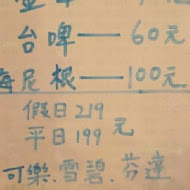 金牌
台啤——60元
海尼根——100元
假日219元
平日199
可樂、雪碧、芬達